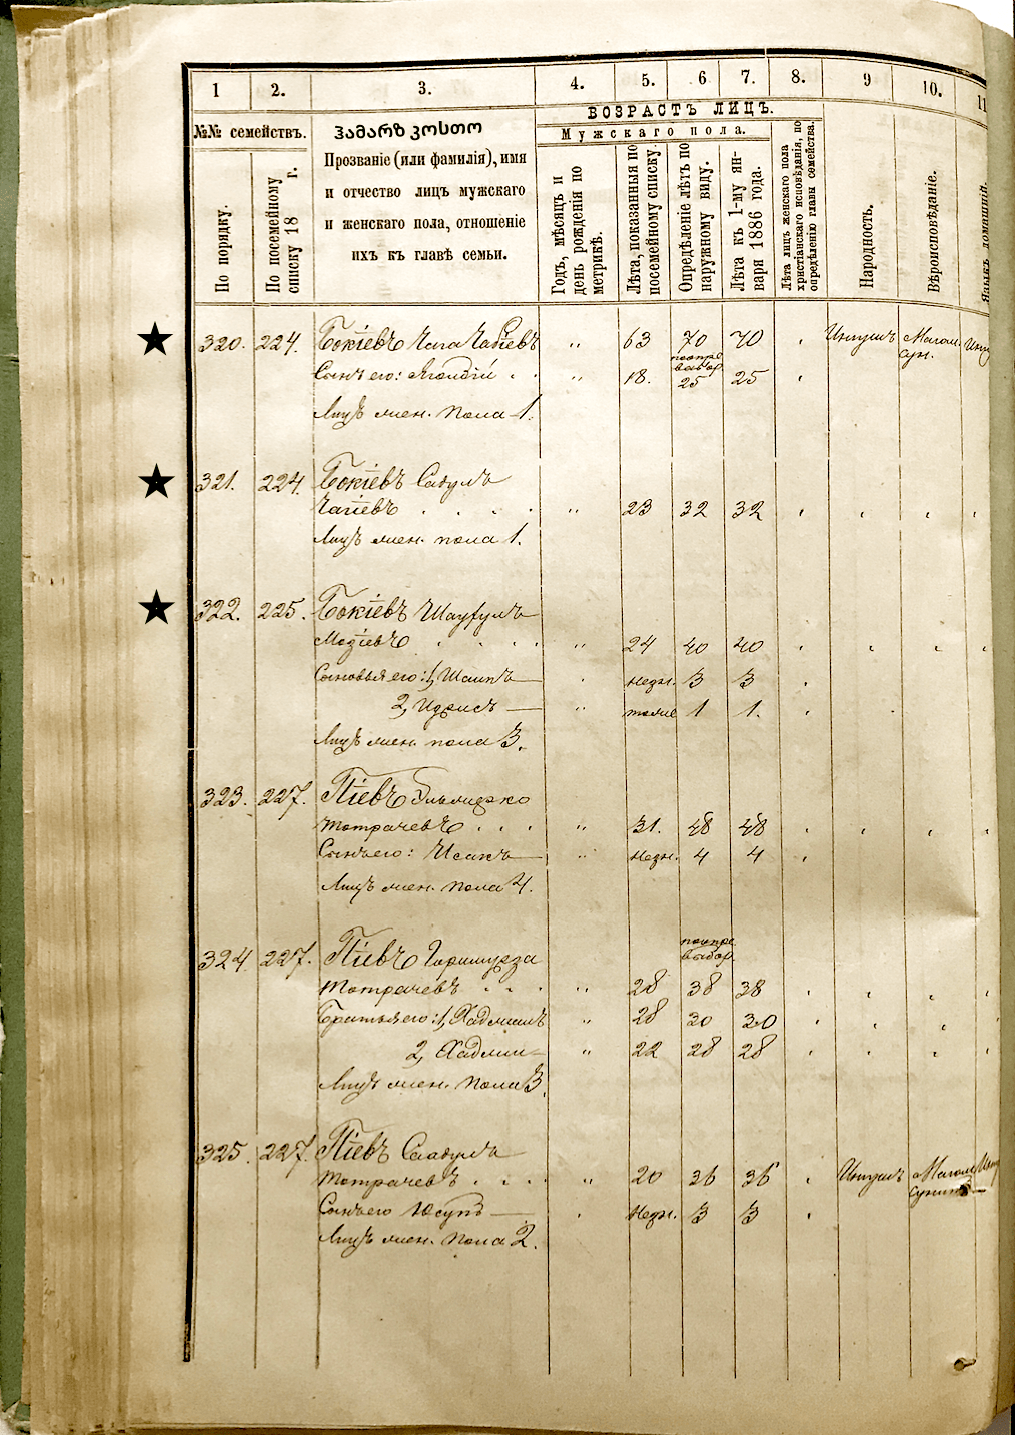 1 2. 3. 4. 5. 6 7. 8. 9 10. 11
ВОЗРАСТЪ ЛИЦЪ.
№№ семействъ.
ჰამარზ კოსთო
Мужскаго пола.
Прозваніе (или фамилія), имя
и отчество лицъ мужскаго
и женскаго пола, отношеніе
ихъ къ главѣ семьи.
По порядку.
По посемейному
списку 18 г.
Годъ, мѣсяцъ и
день рожденія по
метрикѣ.
Лѣта, показанныя по
посемейному списку.
Опредѣленіе лѣтъ по
наружному виду.
Лѣта къ 1-му ян-
варя 1886 года.
Лѣта лицъ женскаго пола
христіанскаго исповѣданія, по
опредѣленію главы семейства.
Народность.
Вѣроисповѣданіе.
Языкъ домашній.
★ 320. 224. Бокіевъ Чага Чабіевъ „ 63 70 70 Ингушъ Магом. Инг
сун.
Сынъ его: „ 18. 25 25
Лицъ жен. пола 1.
★ 321. 224. Бокіевъ Садулъ
Чагіевъ . . . . „ 23 32 32
Лицъ жен. пола 1.
★ 322. 225. Бокіевъ Шаулулъ
Мозіевъ . . . . „ 24 40 40
Сыновья его: 1, Шаипъ — недн. 3 3
2, Идрисъ — „ тоже 1 1.
Лицъ жен. пола 3.
323. 227. Піевъ Эльмурзко
Тотрачевъ . . . „ 31. 48 48
Сынъ его: Исакъ — „ недн. 4 4
Лицъ жен. пола 4.
324. 227. Піевъ Гаримурза
Тотрачевъ . . . „ 28 38 38
Братья его: 1, „ 28 30 30
2, — „ 22 28 28
Лицъ жен. пола 3.
325. 227. Піевъ Саадулъ
Тотрачевъ . . . . „ 20 36 36 Ингушъ Магом. Инг
сунит —
Сынъ его Юсупъ — недн. 3 3
Лицъ жен. пола 2.